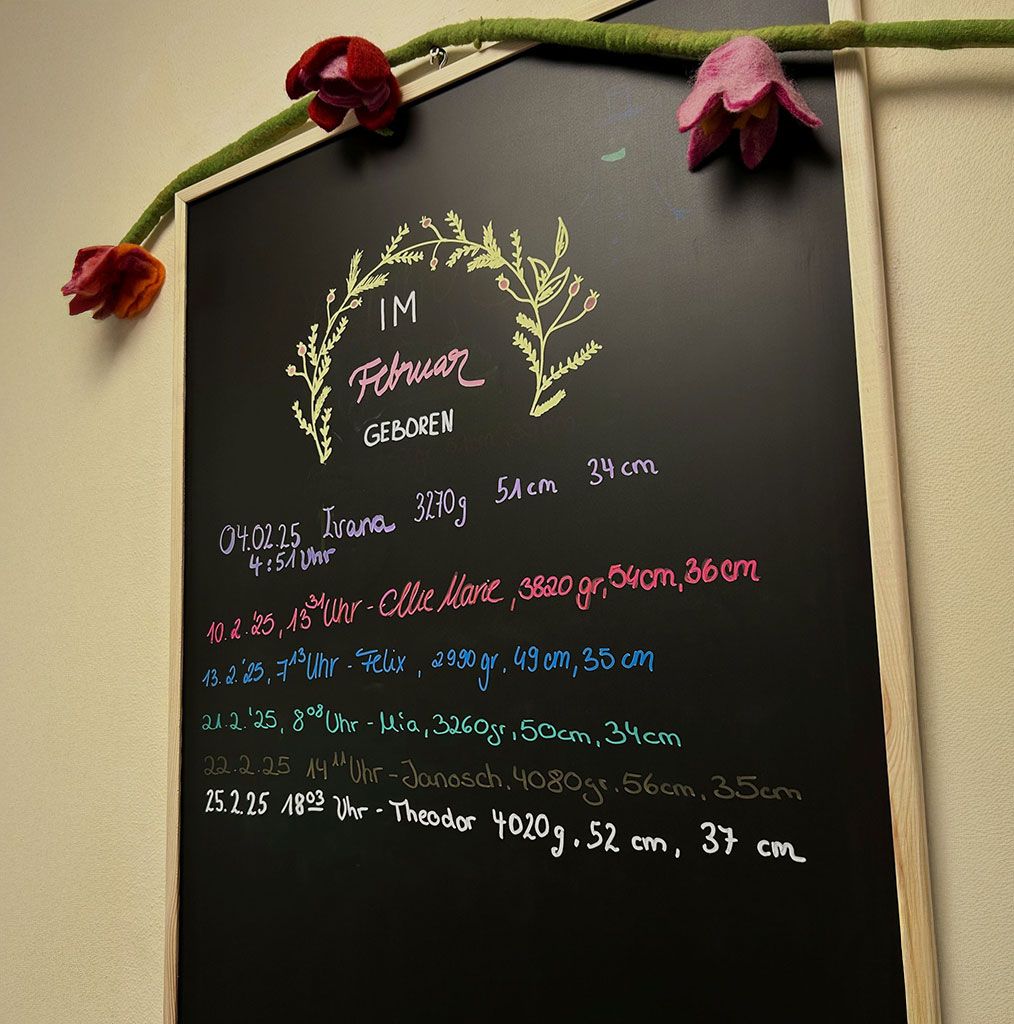 IM
Februar
GEBOREN
04.02.25 Ivana 3270g 51cm 34cm
4:51 Uhr
10.2.'25, 13³¹ Uhr - Ellie Marie, 3820 gr, 54cm, 36cm
13.2.'25, 7¹³ Uhr - Felix, 2990 gr. 49 cm, 35 cm
21.2.'25, 8⁰⁸ Uhr - Mia, 3260gr, 50cm, 34cm
22.2.25 14¹¹ Uhr - Janosch, 4080gr. 56cm, 35cm
25.2.25 18⁰³ Uhr - Theodor 4020g, 52 cm, 37 cm